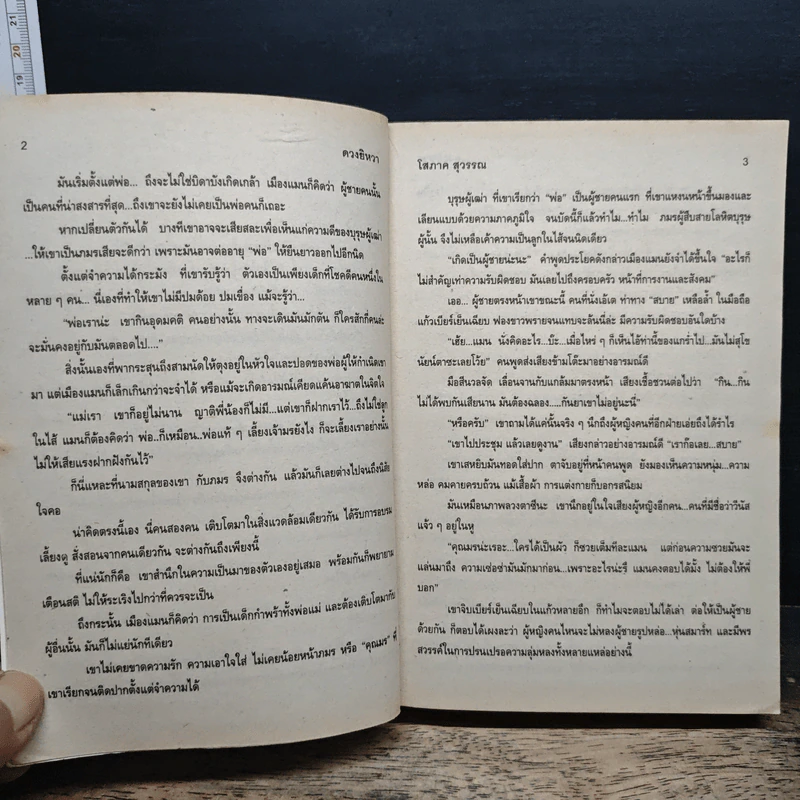 21
20
19
2
ดวงยิหวา
มันเริ่มตั้งแต่พ่อ... ถึงจะไม่ใช่บิดาบังเกิดเกล้า เมืองแมนก็คิดว่า ผู้ชายคนนั้น
เป็นคนที่น่าสงสารที่สุด...ถึงเขาจะยังไม่เคยเป็นพ่อคนก็เถอะ
หากเปลี่ยนตัวกันได้ บางทีเขาอาจจะเสียสละเพื่อเห็นแก่ความดีของบุรุษผู้เฒ่า
...ให้เขาเป็นภมรเสียจะดีกว่า เพราะมันอาจต่ออายุ “พ่อ” ให้ยืนยาวออกไปอีกนิด
ตั้งแต่จำความได้กระมัง ที่เขารับรู้ว่า ตัวเองเป็นเพียงเด็กที่โชคดีคนหนึ่งใน
หลาย ๆ คน... นี่เองที่ทำให้เขาไม่มีปมด้อย ปมเขื่อง แม้จะรู้ว่า...
“พ่อเราน่ะ เขากินอุดมคติ คนอย่างนั้น ทางจะเดินมันมักตัน ก็ใครสักกี่คนล่ะ
จะมั่นคงอยู่กับมันตลอดไป....”
สิ่งนั้นเองที่พากระสุนถึงสามนัดให้ตุงอยู่ในหัวใจและปอดของพ่อผู้ให้กำเนิดเขา
มา แต่เมืองแมนก็เล็กเกินกว่าจะจำได้ หรือแม้จะเกิดอารมณ์เคียดแค้นอาฆาตในจิตใจ
“แม่เรา เขาก็อยู่ไม่นาน ญาติพี่น้องก็ไม่มี...แต่เขาก็ฝากเราไว้...ถึงไม่ใช่ลูก
ในไส้ แมนก็ต้องคิดว่า พ่อ..ก็เหมือน..พ่อแท้ ๆ เลี้ยงเจ้ามรยังไง ก็จะเลี้ยงเราอย่างนั้น
ไม่ให้เสียแรงฝากฝังกันไว้”
ก็นี่แหละที่นามสกุลของเขา กับภมร จึงต่างกัน แล้วมันก็เลยต่างไปจนถึงนิสัย
ใจคอ
น่าคิดตรงนี้เอง นี่คนสองคน เติบโตมาในสิ่งแวดล้อมเดียวกัน ได้รับการอบรม
เลี้ยงดู สั่งสอนจากคนเดียวกัน จะต่างกันถึงเพียงนี้
ที่แน่นักก็คือ เขาสำนึกในความเป็นมาของตัวเองอยู่เสมอ พร้อมกันก็พยายาม
เตือนสติ ไม่ให้ระเริงไปกว่าที่ควรจะเป็น
ถึงกระนั้น เมืองแมนก็คิดว่า การเป็นเด็กกำพร้าทั้งพ่อแม่ และต้องเติบโตมากับ
ผู้อื่นนั้น มันก็ไม่แย่นักทีเดียว
เขาไม่เคยขาดความรัก ความเอาใจใส่ ไม่เคยน้อยหน้าภมร หรือ “คุณมร” ที่
เขาเรียกจนติดปากตั้งแต่จำความได้
โสภาค สุวรรณ
3
บุรุษผู้เฒ่า ที่เขาเรียกว่า “พ่อ” เป็นผู้ชายคนแรก ที่เขาแหงนหน้าขึ้นมองและ
เลียนแบบด้วยความภาคภูมิใจ จนบัดนี้ก็แล้วทำไม...ทำไม ภมรผู้สืบสายโลหิตบุรุษ
ผู้นั้น จึงไม่เหลือเค้าความเป็นลูกในไส้จนนิดเดียว
“เกิดเป็นผู้ชายน่ะนะ” คำพูดประโยคดังกล่าวเมืองแมนยังจำได้ขึ้นใจ “อะไรก็
ไม่สำคัญเท่าความรับผิดชอบ มันเลยไปถึงครอบครัว หน้าที่การงานและสังคม”
เออ... ผู้ชายตรงหน้าเขาขณะนี้ คนที่นั่งเอ้เต ท่าทาง “สบาย” เหลือล้ำ ในมือถือ
แก้วเบียร์เย็นเฉียบ ฟองขาวพรายจนแทบจะล้นนี่ล่ะ มีความรับผิดชอบอันใดบ้าง
“เฮ้ย...แมน นั่งคิดอะไร...บ๊ะ...เมื่อไหร่ ๆ ก็เห็นไอ้ท่านี้ของแกร่ำไป...มันไม่สุโข
นัยน์ตาซะเลยโว้ย” คนพูดส่งเสียงข้ามโต๊ะมาอย่างอารมณ์ดี
มือสีนวลจัด เลื่อนจานกับแกล้มมาตรงหน้า เสียงเชื้อชวนต่อไปว่า “กิน...กิน
ไม่ได้พบกันเสียนาน มันต้องฉลอง.....กันยาเขาไม่อยู่นะนี่”
“หรือครับ” เขาถามได้แค่นั้นจริง ๆ นึกถึงผู้หญิงคนที่อีกฝ่ายเอ่ยถึงได้รำไร
“เขาไปประชุม แล้วเลยดูงาน” เสียงกล่าวอย่างอารมณ์ดี “เราก็อเลย...สบาย”
เขาเสหยิบมันทอดใส่ปาก ตาจับอยู่ที่หน้าคนพูด ยังมองเห็นความหนุ่ม...ความ
หล่อ คมคายครบถ้วน แม้เสื้อผ้า การแต่งกายก็บอกรสนิยม
มันเหมือนภาพลวงตาซีนะ เขานึกอยู่ในใจเสียงผู้หญิงอีกคน...คนที่มีชื่อว่าวีนัส
แจ้ว ๆ อยู่ในหู
“คุณมรน่ะเรอะ...ใครได้เป็นผัว ก็ซวยเต็มทีละแมน แต่ก่อนความซวยมันจะ
แล่นมาถึง ความเซ่อซ่ามันมักมาก่อน...เพราะอะไรน่ะรึ แมนคงตอบได้มั้ง ไม่ต้องให้พี่
บอก”
เขาจิบเบียร์เย็นเฉียบในแก้วหลายอึก ก็ทำไมจะตอบไม่ได้เล่า ต่อให้เป็นผู้ชาย
ด้วยกัน ก็ตอบได้เผงละว่า ผู้หญิงคนไหนจะไม่หลงผู้ชายรูปหล่อ...หุ่นสมาร์ท และมีพร
สวรรค์ในการปรนเปรอความลุ่มหลงทั้งหลายแหล่อย่างนี้